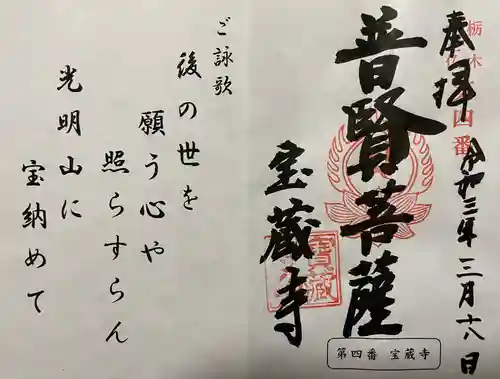 奉拝
栃木
四番
令和三年三月十八日
普賢菩薩
宝蔵寺
寳蔵
第四番 宝蔵寺
ご詠歌
後の世を
願う心や
照らすらん
光明山に
宝納めて